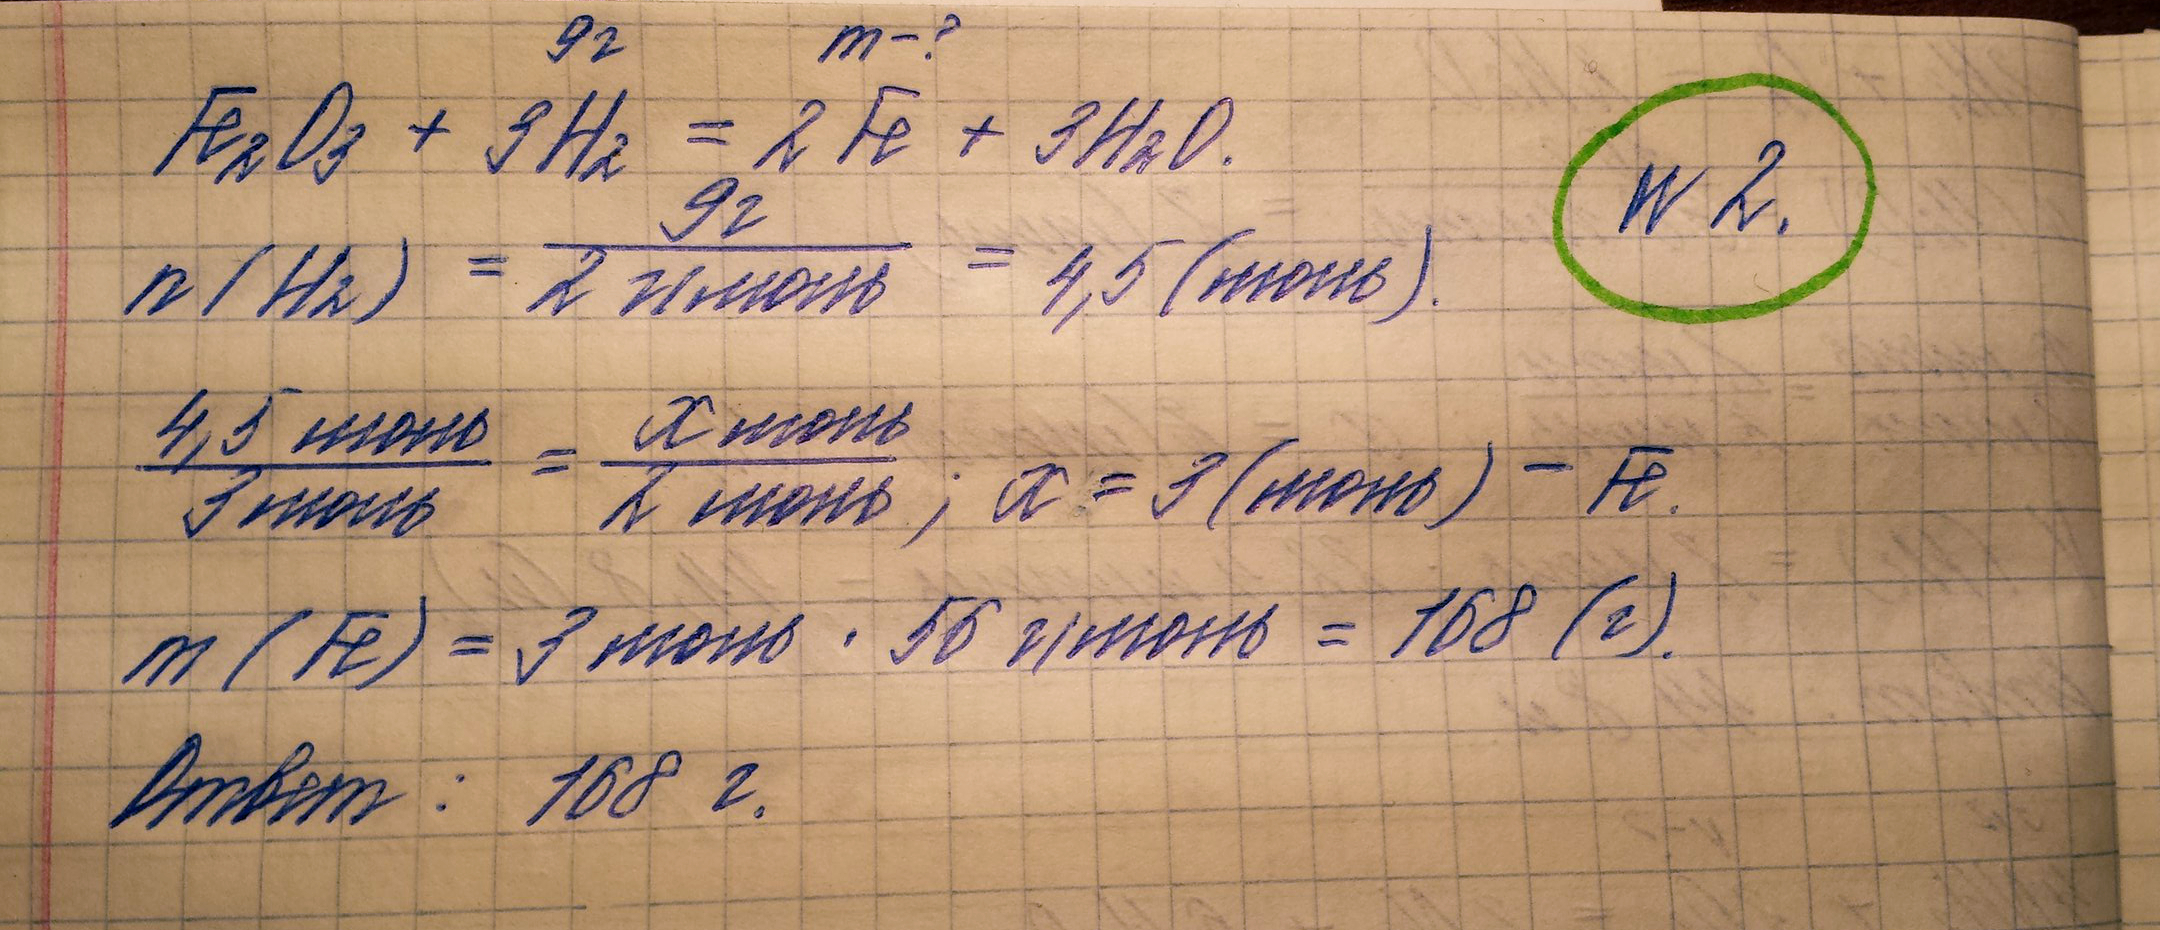 9г m-?
Fe₂O₃ + 3H₂ = 2Fe + 3H₂O.
n(H₂) = 9г / 2 г/моль = 4,5 (моль).
N 2.
4,5 моль / 3 моль = x моль / 2 моль ; x = 3 (моль) - Fe.
m (Fe) = 3 моль · 56 г/моль = 168 (г).
Ответ : 168 г.